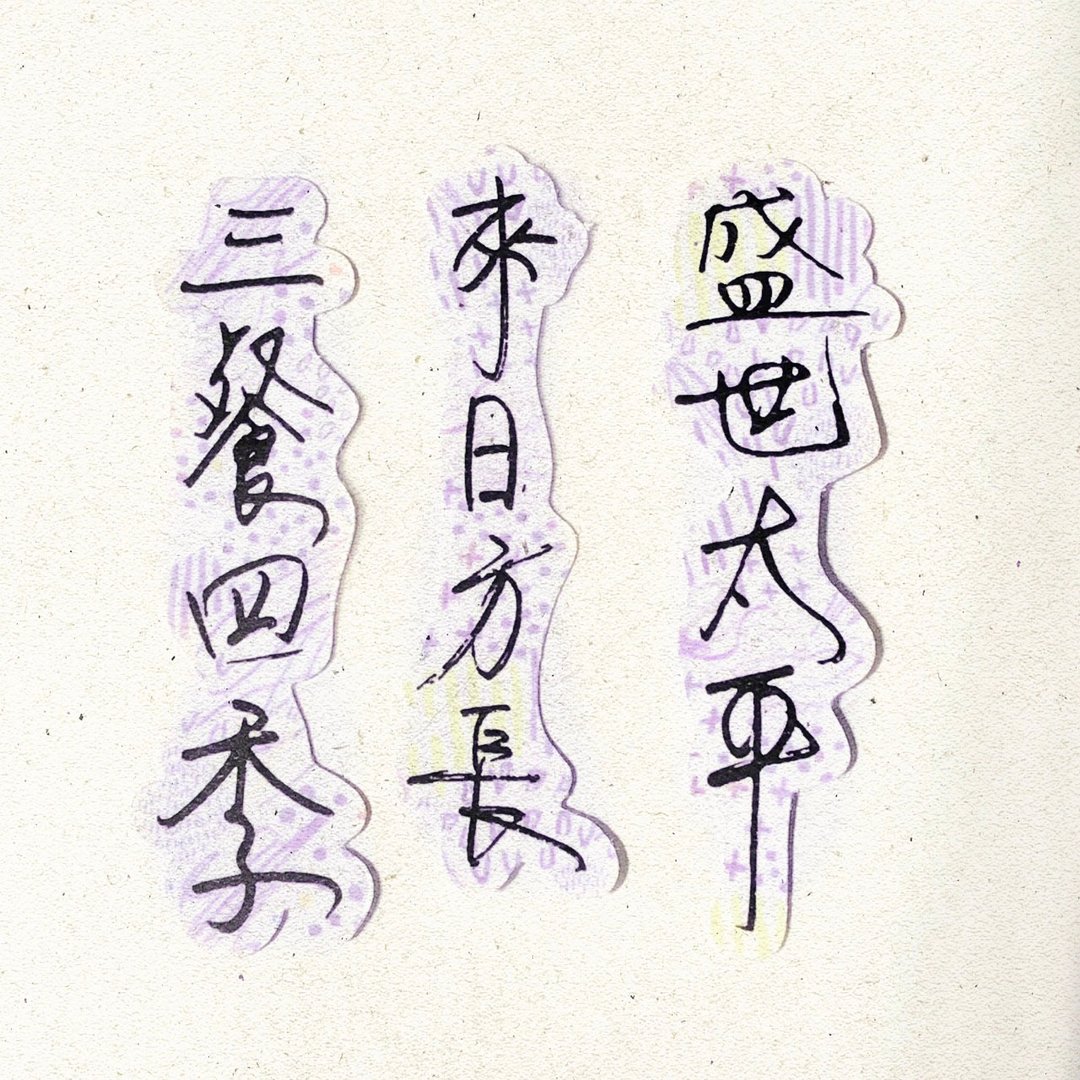 盛世太平
來日方長
三餐四季